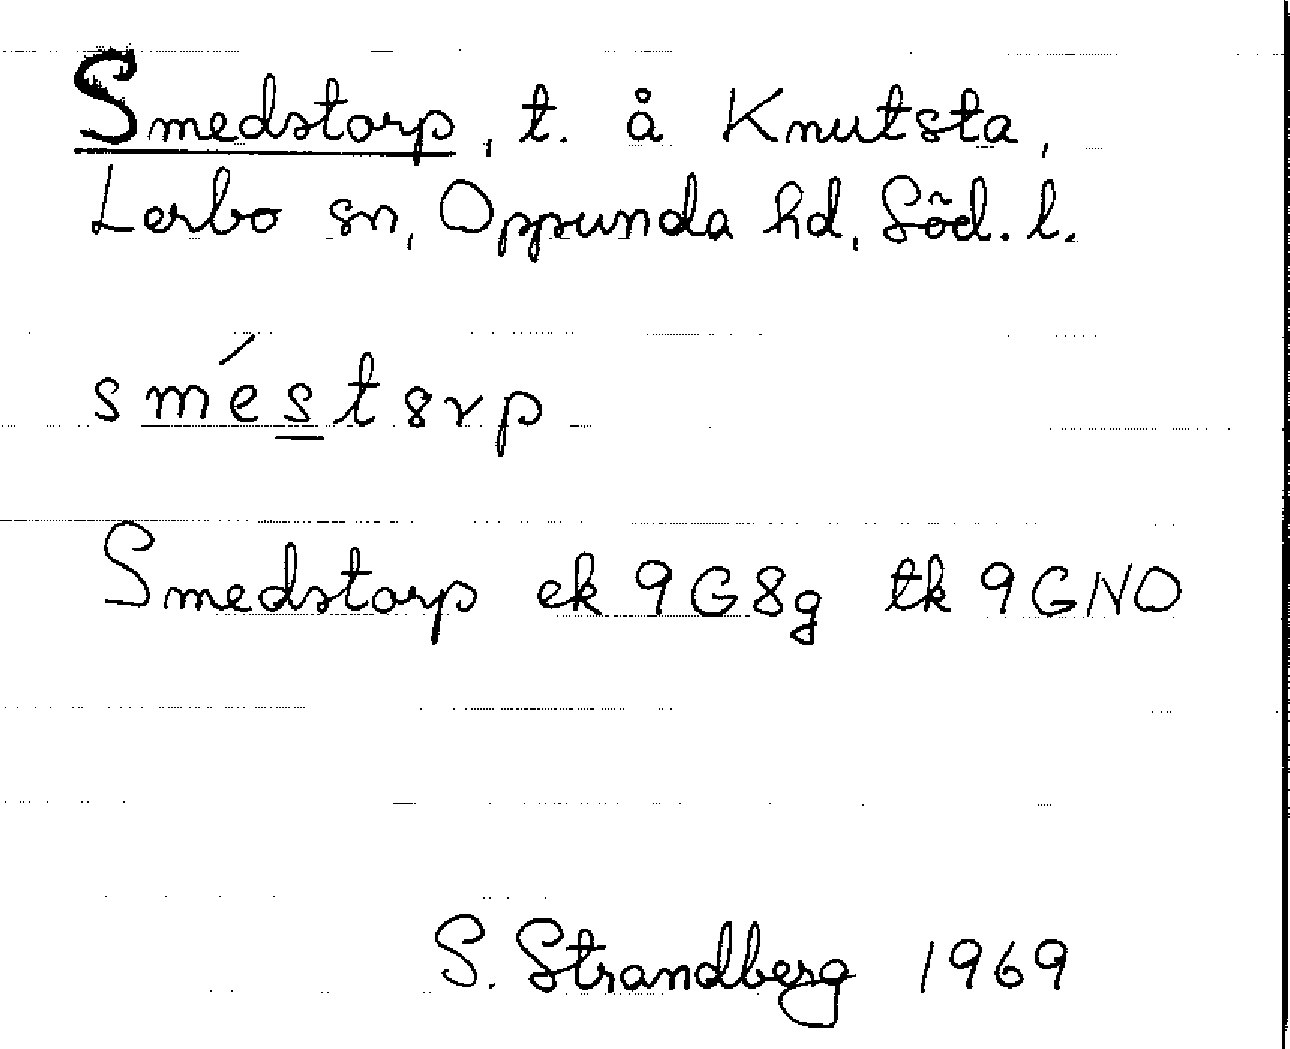 Smedstorp, t. å Knutsta,
Lerbo sn, Oppunda hd, Söd. l.
sme´stsrp
Smedstorp ek 9G8g tk 9GNO
S. Strandberg 1969